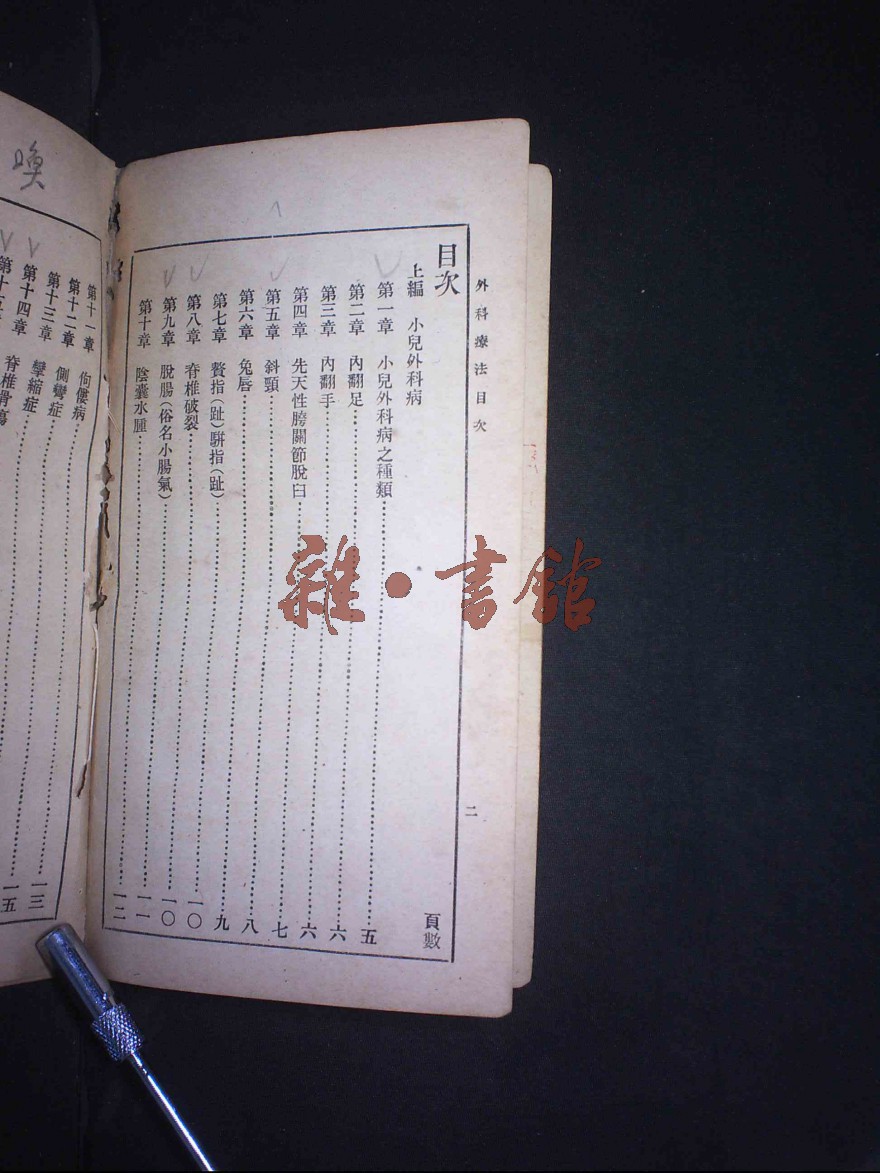 外科療法目次
二
目次
頁數
上編 小兒外科病
第一章 小兒外科病之種類 五
第二章 內翻足 六
第三章 內翻手 六
第四章 先天性胯關節脫臼 六
第五章 斜頸 七
第六章 兔唇 八
第七章 贅指(趾)駢指(趾) 九
第八章 脊椎破裂 一〇
第九章 脫腸(俗名小腸氣) 一〇
第十章 陰囊水腫
第十一章 佝僂病
第十二章 側彎症
第十三章 攣縮症
第十四章
雜•書館
喚